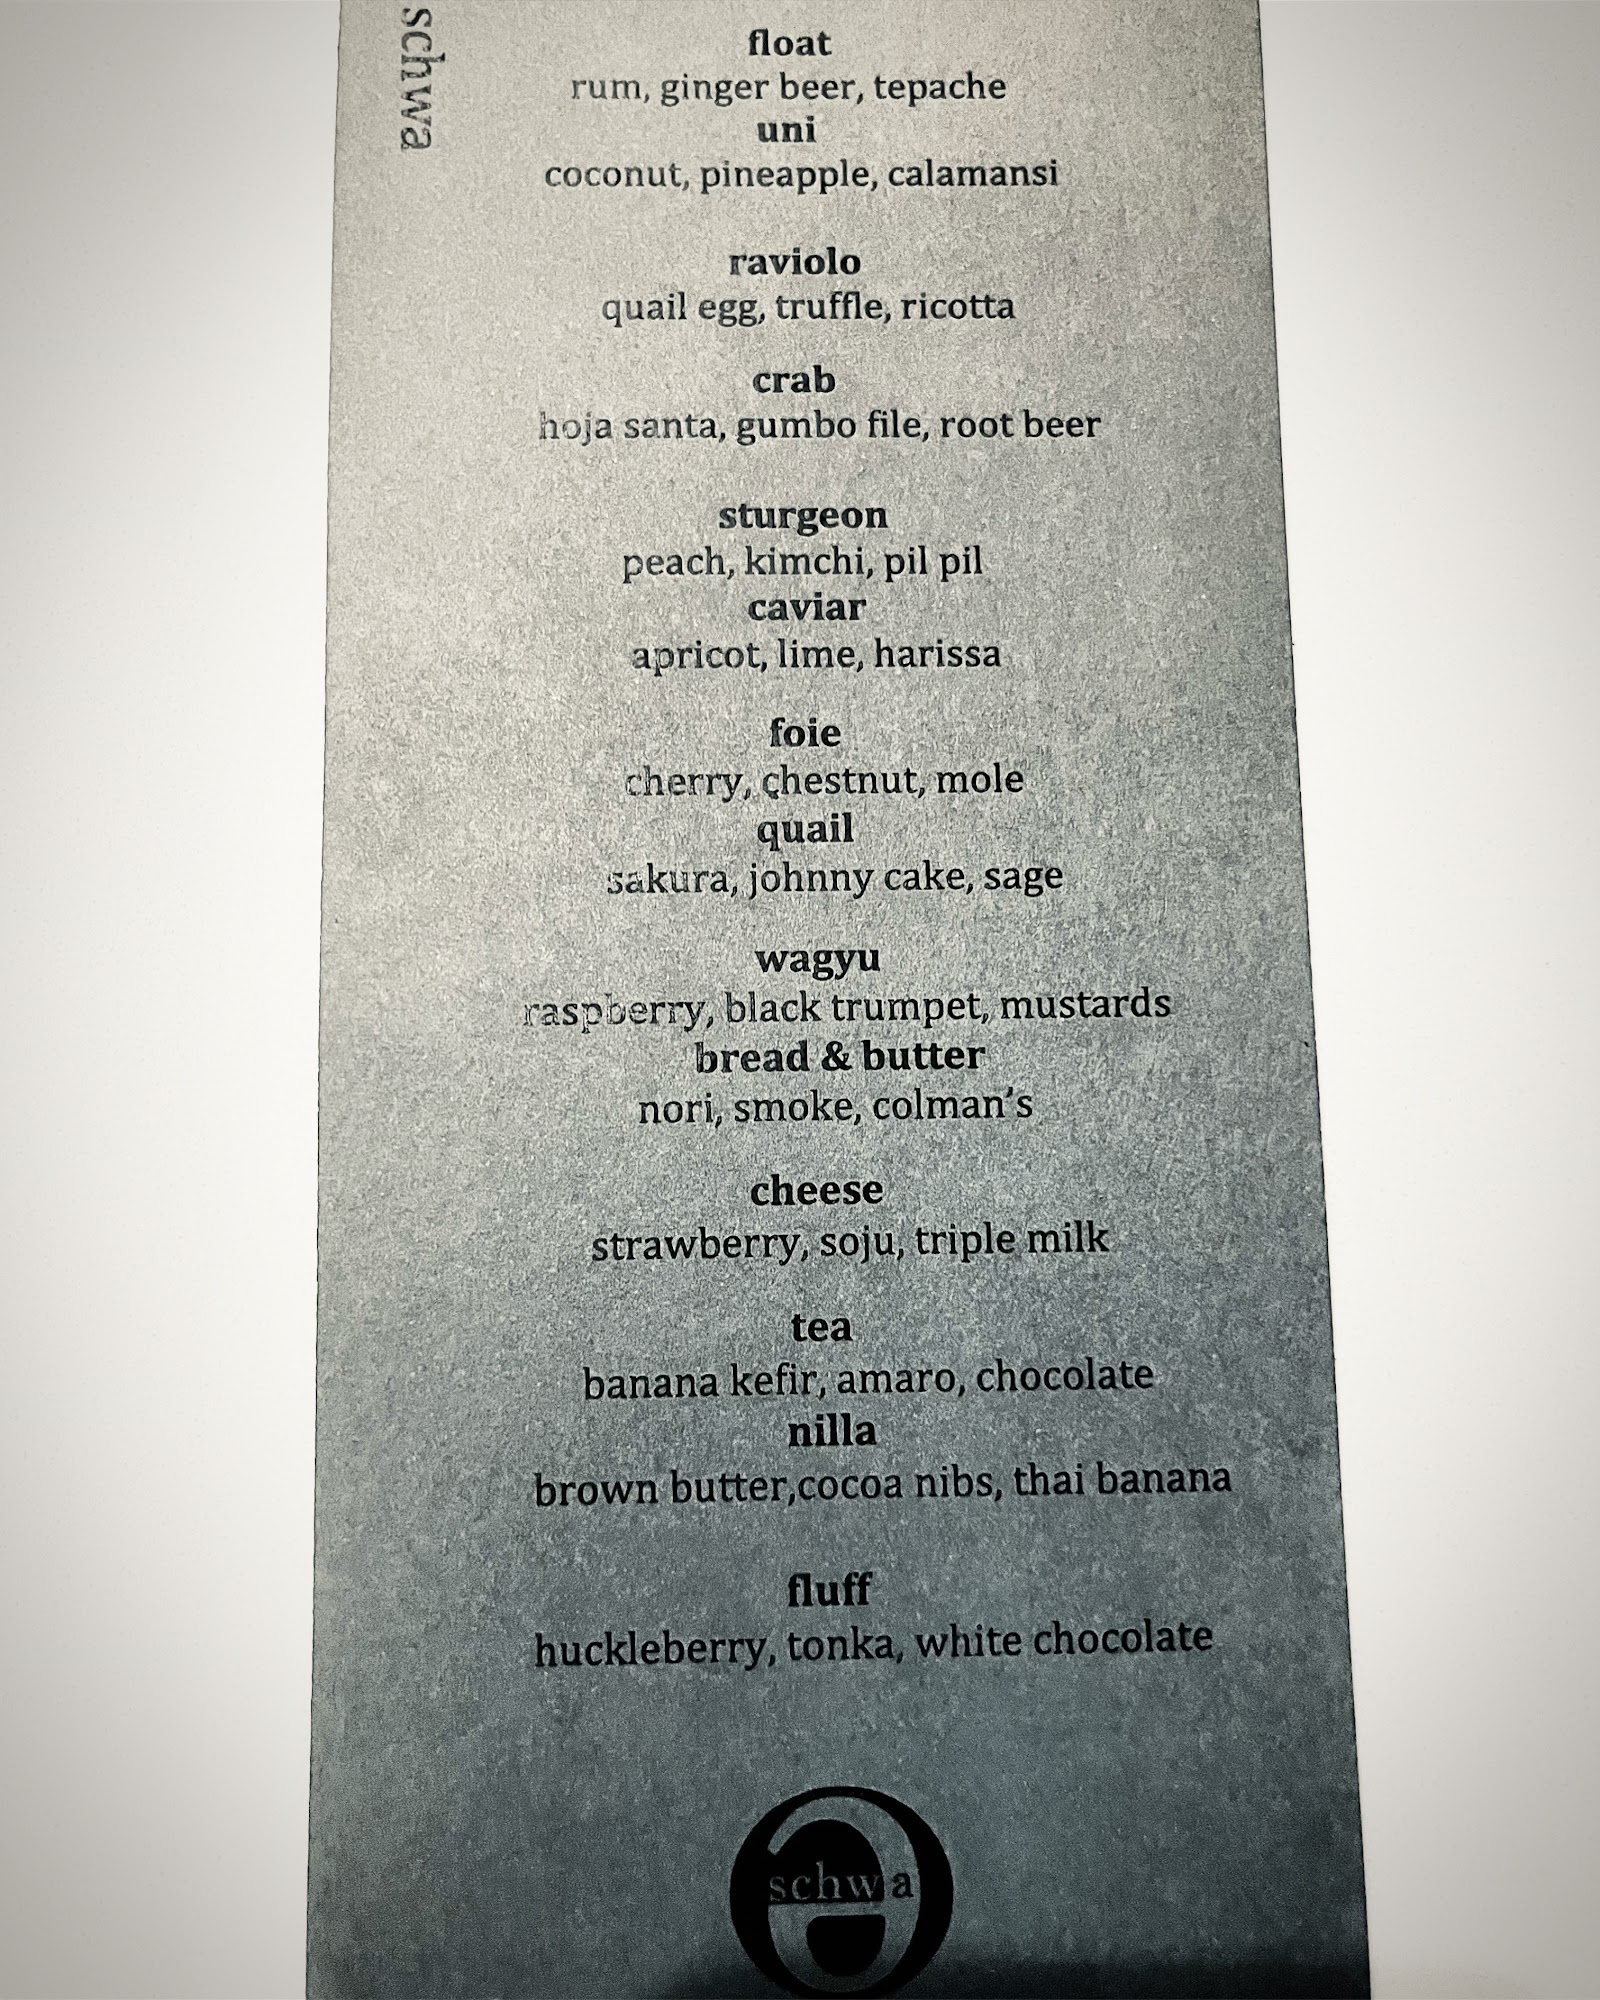 schwa
float
rum, ginger beer, tepache
uni
coconut, pineapple, calamansi
raviolo
quail egg, truffle, ricotta
crab
hoja santa, gumbo file, root beer
sturgeon
peach, kimchi, pil pil
caviar
apricot, lime, harissa
foie
cherry, chestnut, mole
quail
sakura, johnny cake, sage
wagyu
raspberry, black trumpet, mustards
bread & butter
nori, smoke, colman's
cheese
strawberry, soju, triple milk
tea
banana kefir, amaro, chocolate
nilla
brown butter,cocoa nibs, thai banana
fluff
huckleberry, tonka, white chocolate
schwa